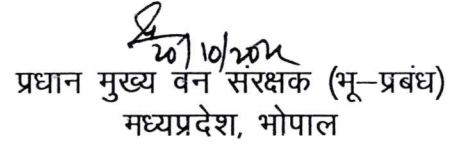 20/10/2022
प्रधान मुख्य वन संरक्षक (भू–प्रबंध)
मध्यप्रदेश, भोपाल